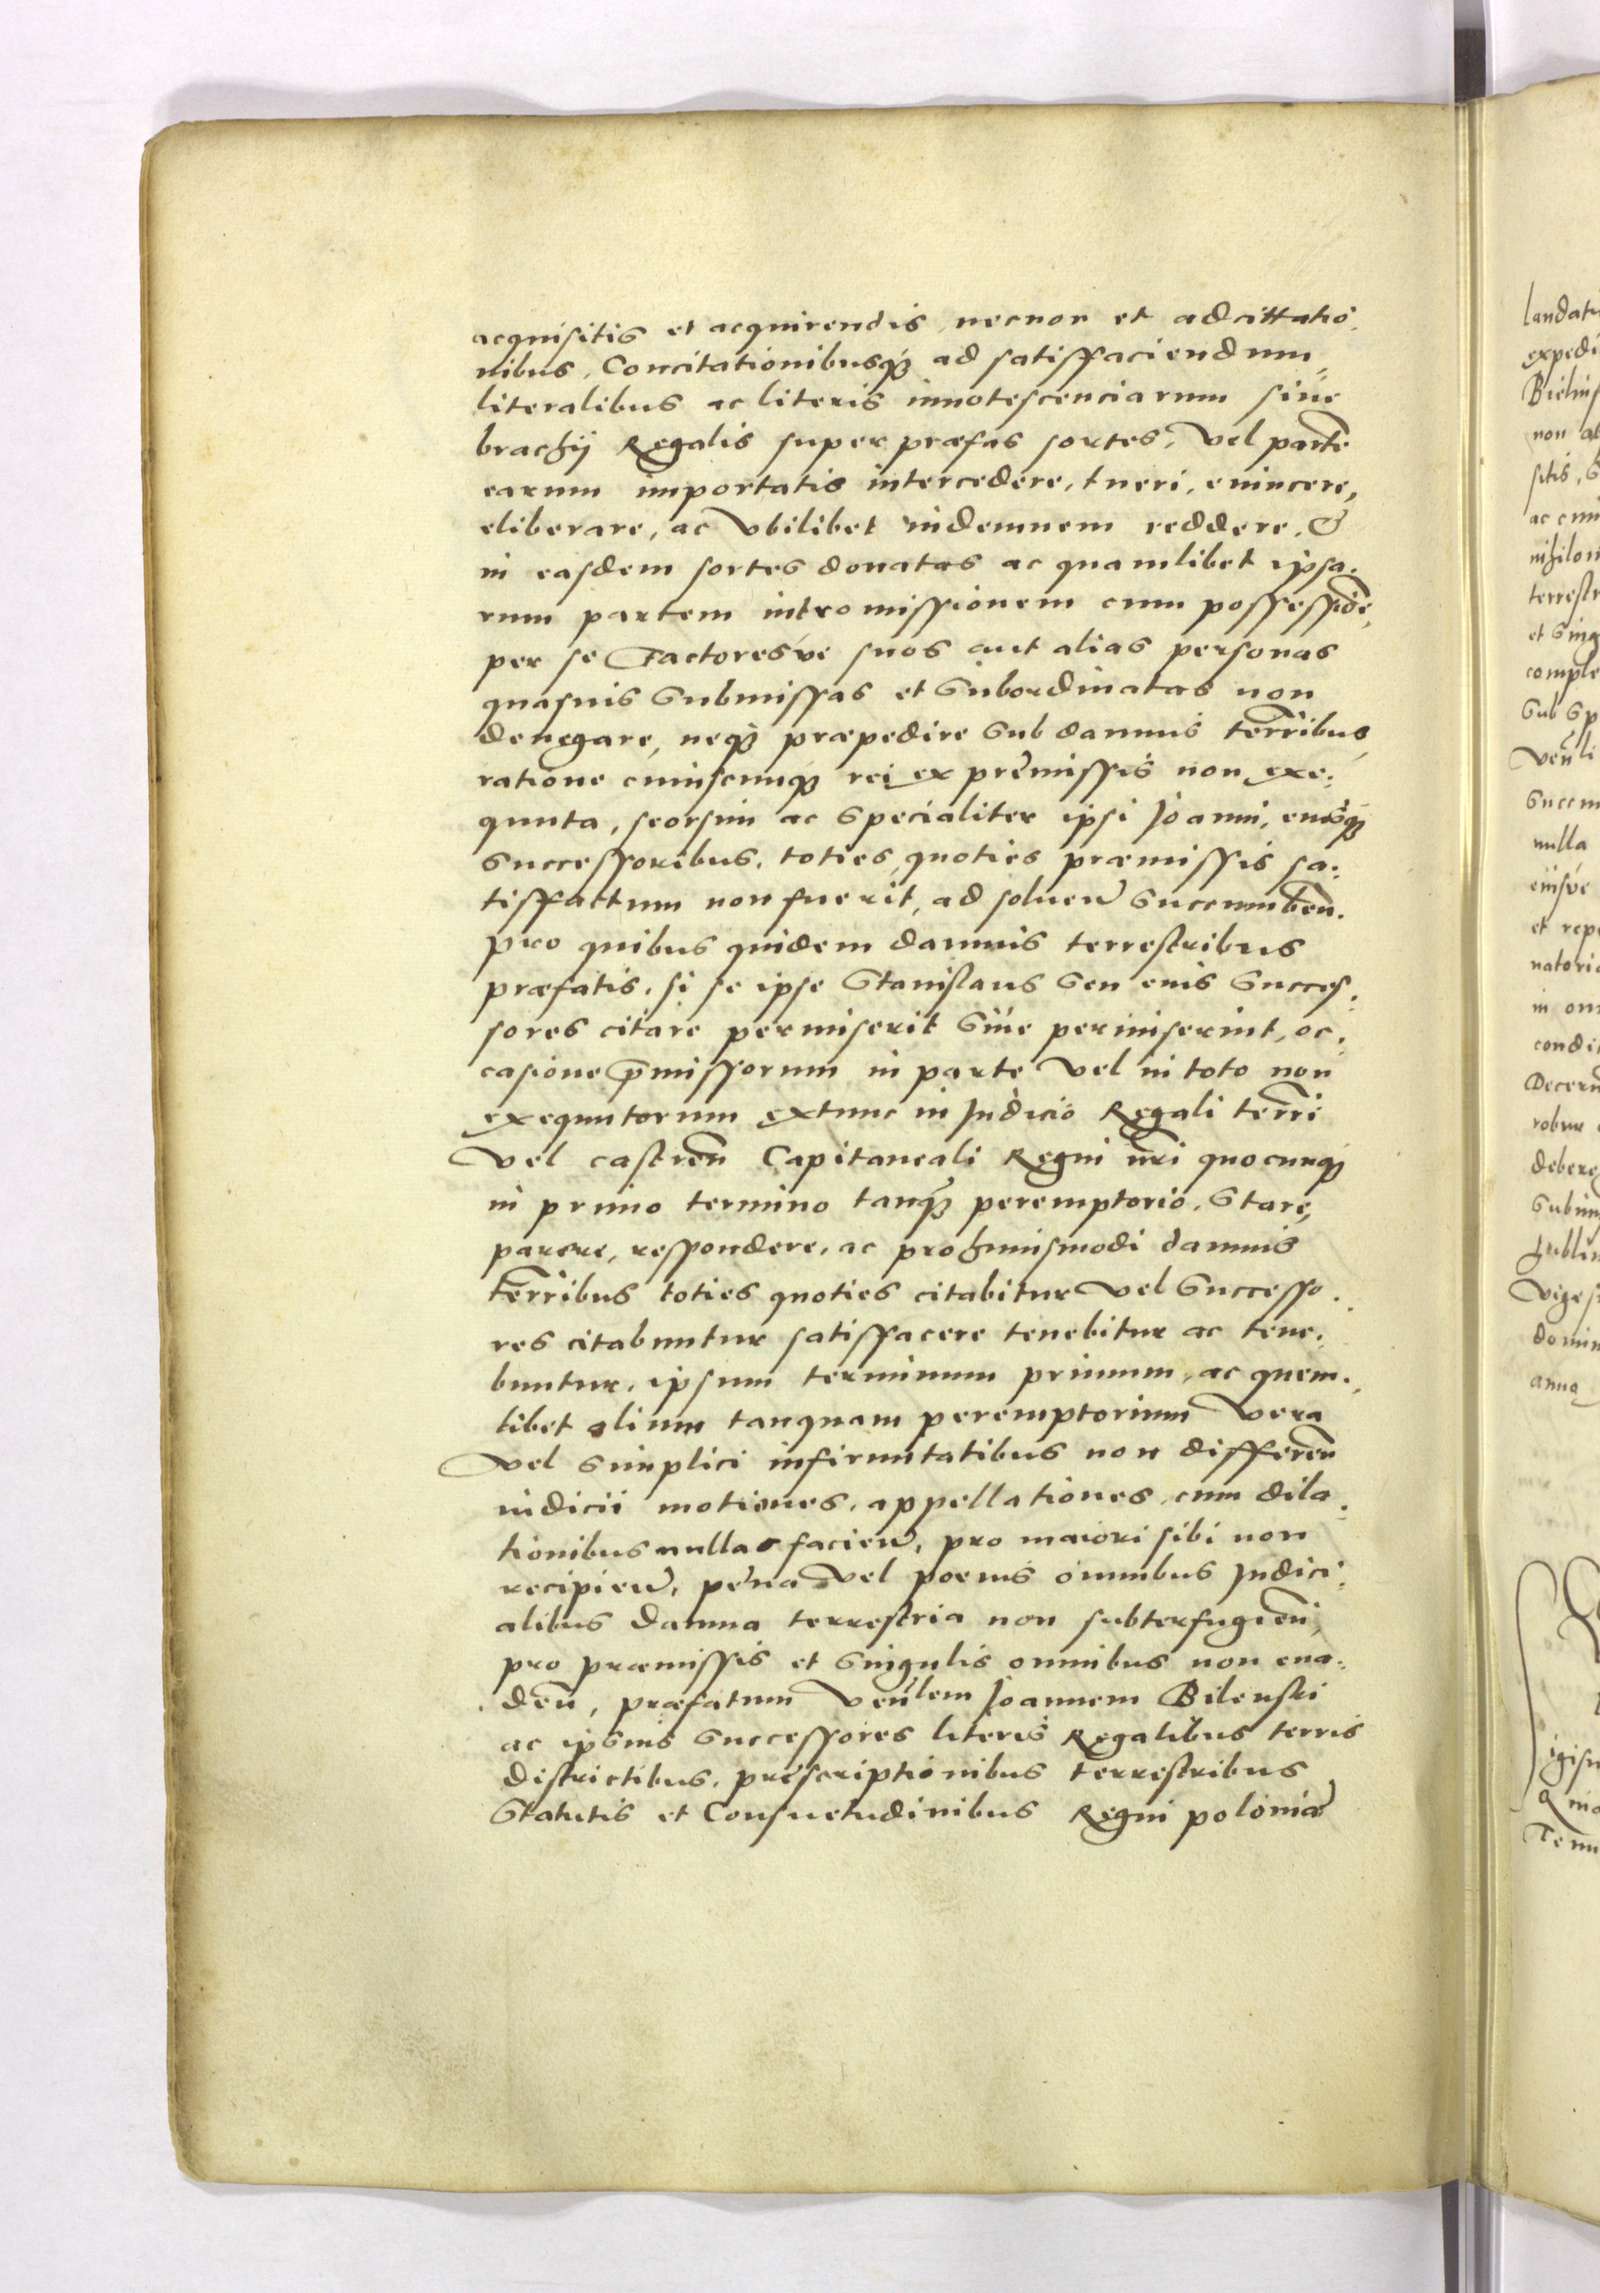 acquisitis et acquirendis, necnon et adcittatio
nibus, Concitationibusque ad satisfaciendum,
literalibus ac literis innotescenciarum sive
brachij Regalis super præfas sortes, vel parte
earum importatis intercedere, tueri, evincere,
eliberare, ac vbilibet indemnem reddere, &
in easdem sortes donatas ac quamlibet ipsa.
rum partem intromissionem cum possessiōe,
per se Factoresve suos aut alias personas
quasuis submissas et subordinatas non
denegare, neque præpedire sub damnis terribus,
ratione cuiuscunque rei ex premissis non exe:
quuta, seorsim ac specialiter ipsi Joanni, eiusque
successoribus, toties, quoties præmissis sa:
tisfactum non fuerit, ad soluen succumben.
pro quibus quidem damnis terrestribus
præfatis, si se ipse Stanislaus seu euis succes.
sores citare permiserit siue permiserint, oc.
casione pmissorum in parte vel in toto non
exequutorum extunc in Judicio Regali terri
vel castren Capitaneali Regni nri quocunque
in primo termino tanque peremptorio, stare,
parere, respondere, ac pro huiusmodi damnis
terribus toties quoties citabitur vel successo.
res citabuntur satisfacere tenebitur ac tene.
buntur, ipsum terminum primum, ac quem.
libet alium tanquam peremptorium vera
vel simplici infirmitatibus non differen
iudicii motiones, appellationes, cum dila.
tionibus nullas facien, pro maiori sibi non
recipien, pena vel poenis omnibus Judici:
alibus damna terrestria non subterfugien,
pro præmissis et singulis omnibus non eua:
den, præfatum venlem Joannem Bilenski
ac ipsius successores literis Regalibus terris
districtibus, præscriptionibus terrestribus
statutis et Consuetudinibus Regni poloniæ
landatu
expedi
Bielins
non al
sitis, s
ac cun
nihilom
terrestr
et sing
comple
sub sp
venli
succum
nulla
eiusve
et rep
natoria
in om
condi
Decern
robur
debere
subim
Lublin
vigesi
domin
anno
igisu